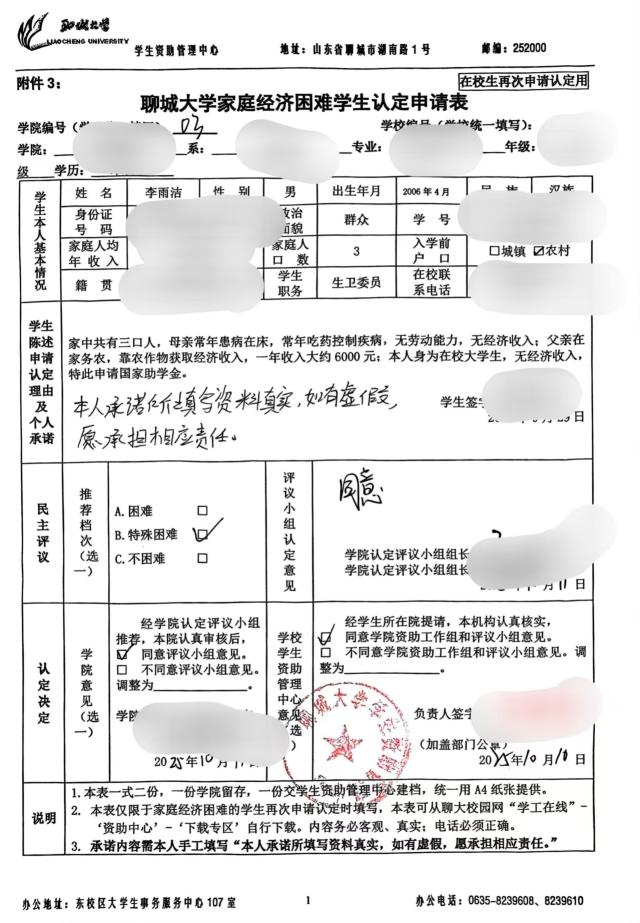 聊城大学
LIAOCHENG UNIVERSITY
学生资助管理中心 地址：山东省聊城市湖南路1号 邮编：252000
附件3： 在校生再次申请认定用
聊城大学家庭经济困难学生认定申请表
学院编号（学 学校编号（学校统一填写）：
学院： 系： 专业： 年级：
级 学历：
学生本人基本情况
姓名 李雨洁 性别 男 出生年月 2006年4月 民族 汉族
身份证号码 政治面貌 群众 学号
家庭人均年收入 家庭人口数 3 入学前户口 □城镇 ☑农村
籍贯 学生职务 生卫委员 在校联系电话
学生陈述申请认定理由及个人承诺
家中共有三口人，母亲常年患病在床，常年吃药控制疾病，无劳动能力，无经济收入；父亲在
家务农，靠农作物获取经济收入，一年收入大约6000元；本人身为在校大学生，无经济收入，
特此申请国家助学金。
本人承诺所填写资料真实，如有虚假，
愿承担相应责任。
学生签字
日
民主评议
推荐档次（选一）
A.困难 □
B.特殊困难 ☑
C.不困难 □
评议小组认定意见
同意
学院认定评议小组组长
学院认定评议小组组长
月11日
认定决定
学院意见（选一）
经学院认定评议小组
推荐，本院认真审核后，
☑ 同意评议小组意见。
□ 不同意评议小组意见。
调整为____________。
学院
2025年10月11日
学校学生资助管理中心意见（选一）
经学生所在院提请，本机构认真核实，
☑ 同意学院资助工作组和评议小组意见。
□ 不同意学院资助工作组和评议小组意见。调
整为____________。
负责人签字
（加盖部门公章）
2025年10月10日
聊城大学学生资助管
说明
1.本表一式二份，一份学院留存，一份交学生资助管理中心建档，统一用A4纸张提供。
2. 本表仅限于家庭经济困难的学生再次申请认定时填写，本表可从聊大校园网“学工在线”-
‘资助中心’-‘下载专区’自行下载。内容务必客观、真实；电话必须正确。
3. 承诺内容需本人手工填写“本人承诺所填写资料真实，如有虚假，愿承担相应责任。”
办公地址：东校区大学生事务服务中心107室 1 办公电话：0635-8239608、8239610